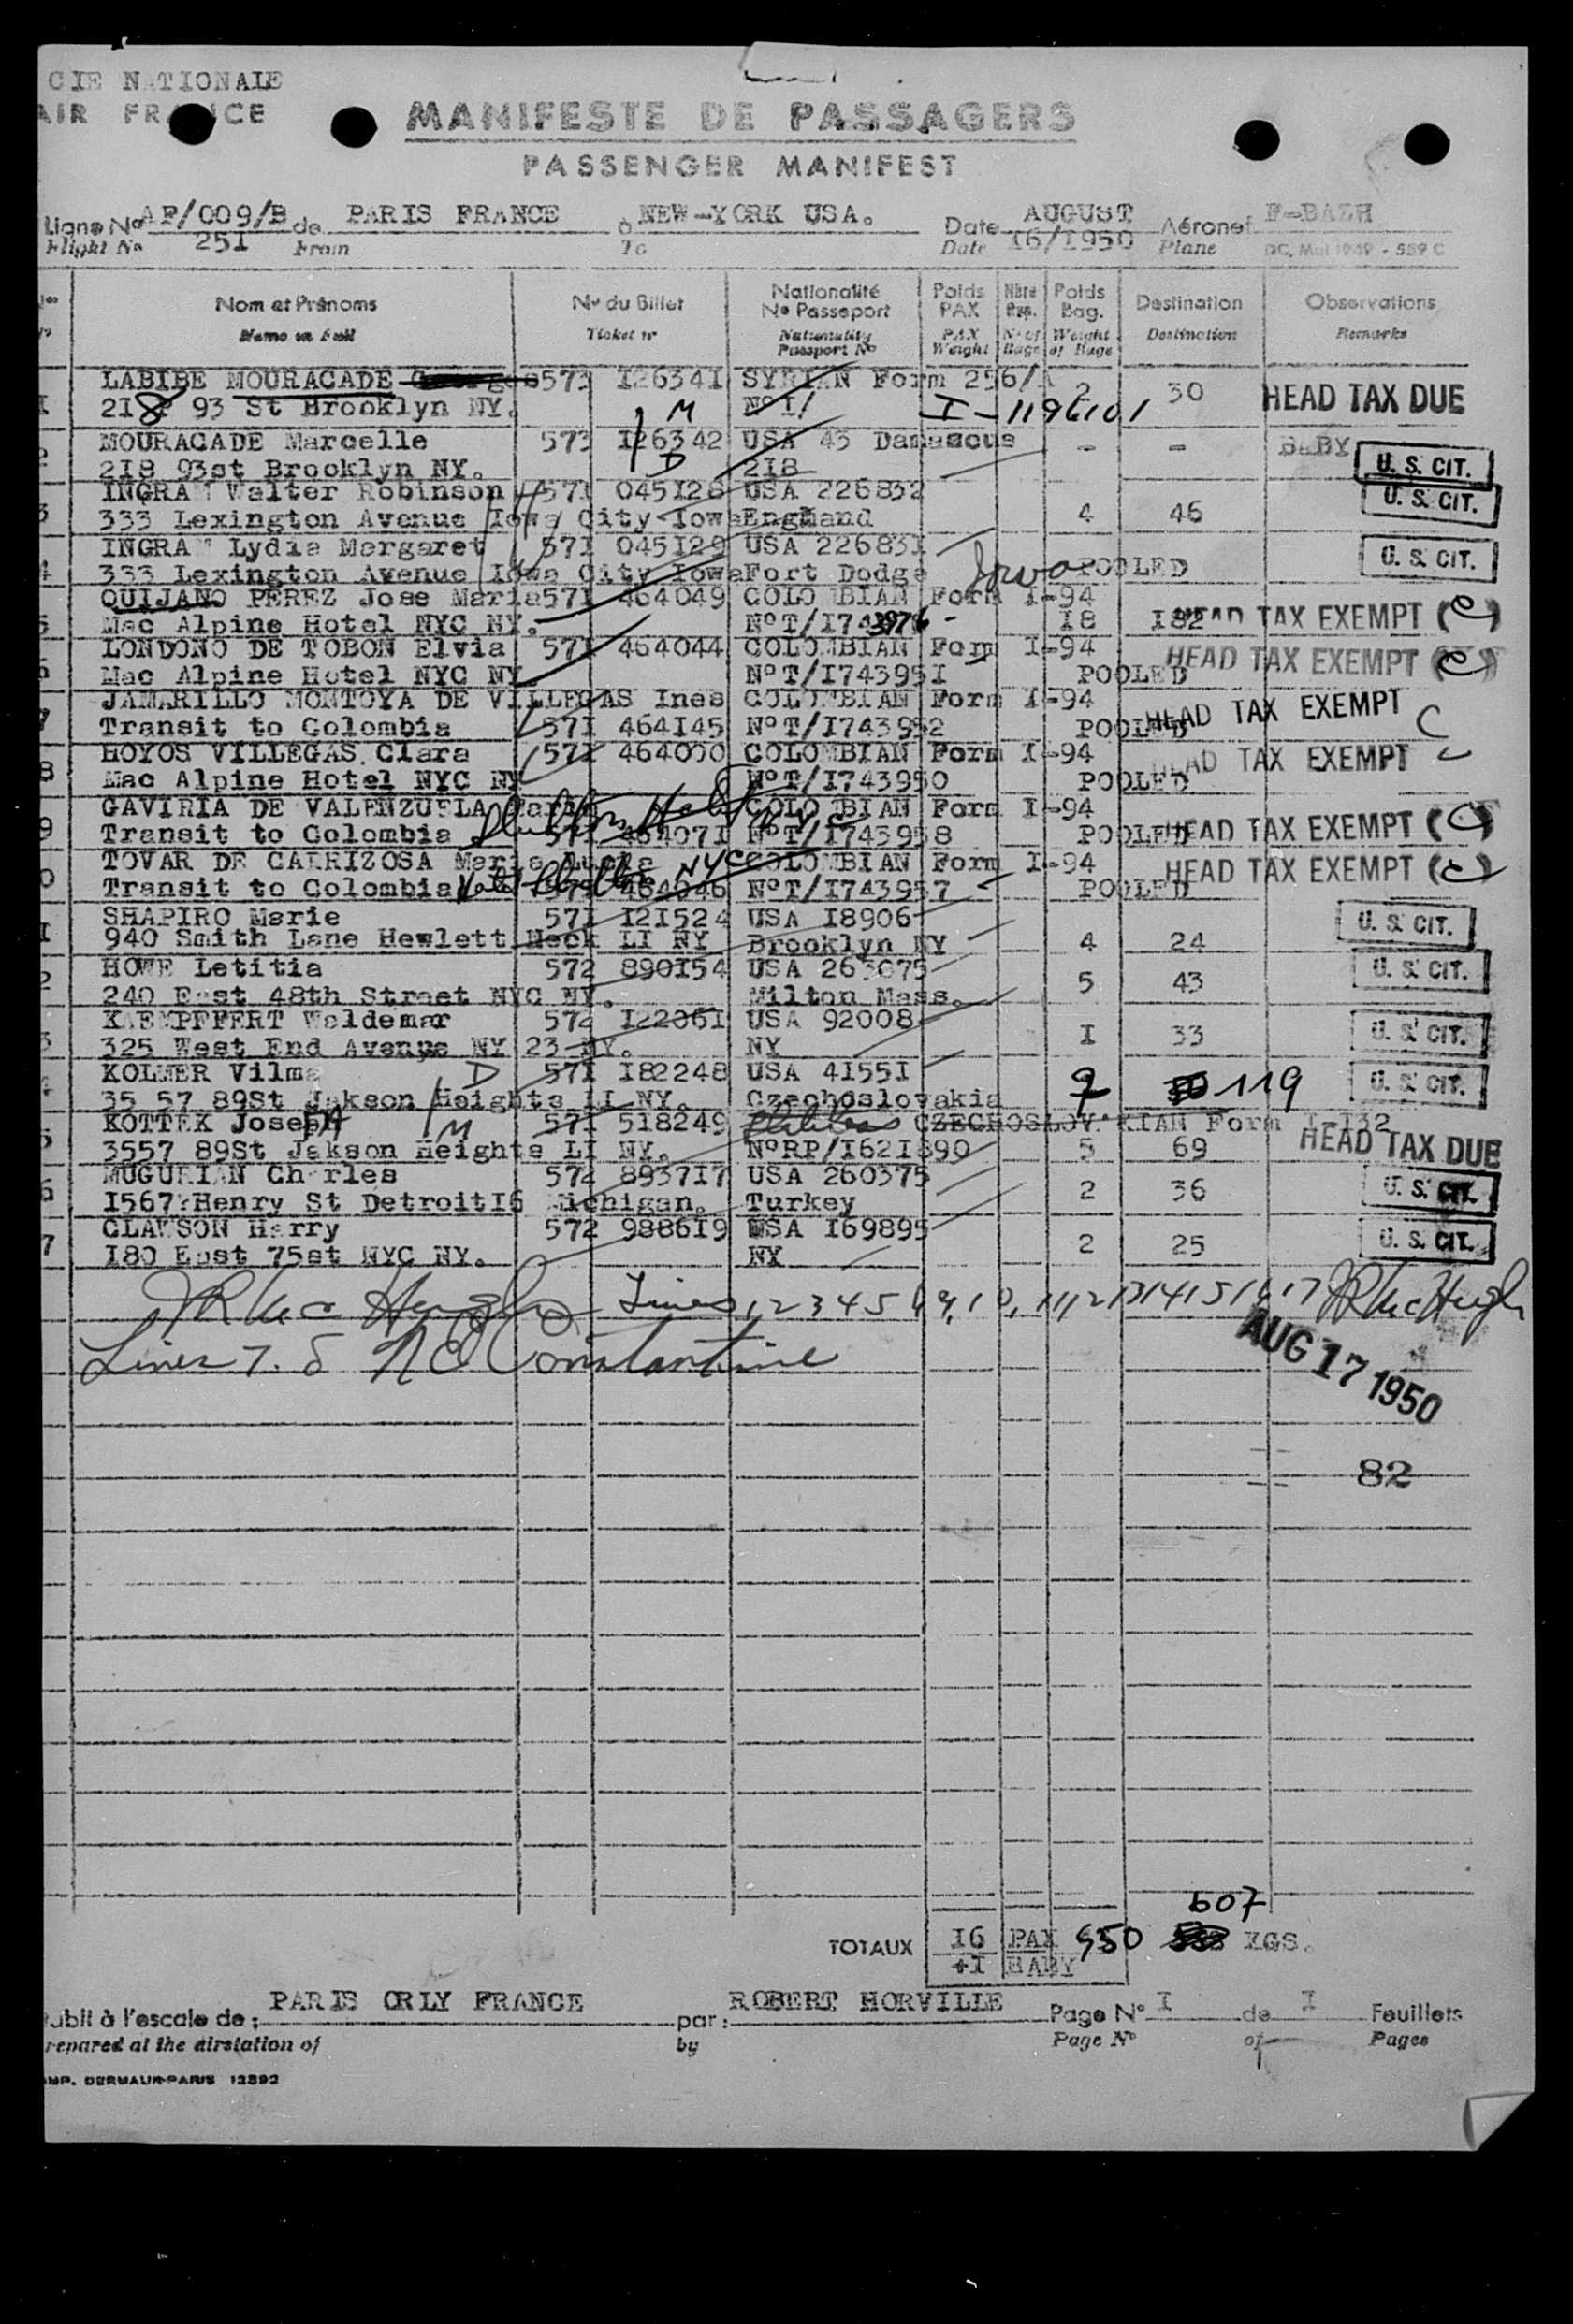 CIE NATIONALE
AIR FRANCE
MANIFESTE DE PASSAGERS
PASSENGER MANIFEST
Ligne No AF/009/B de PARIS FRANCE à NEW-YORK USA. Date AUGUST Aéronef F-BAZH
Flight No 251 From To Date 16/1950 Plane DC. Mai 1949 - 589 C
Nom et Prénoms No du Billet Nationalité No Passeport Poids PAX Nbre Bag. Poids Bag. Destination Observations
Name in Full Ticket nr Nationality Passport No PAX Weight No of Bags Weight of Bags Destination Remarks
LABIBE MOURACADE 573 126341 SYRIAN Form 256/A 2 30 HEAD TAX DUE
1 218 93 St Brooklyn NY. M No I/ I-1196101
MOURACADE Marcelle 573 126342 USA 45 Damascus - - BABY U. S. CIT.
2 218 93st Brooklyn NY. D 218
INGRAM Walter Robinson 571 045128 USA 226832 U. S. CIT.
3 333 Lexington Avenue Iowa City Iowa England 4 46
INGRAM Lydia Margaret 571 045129 USA 226831 U. S. CIT.
4 333 Lexington Avenue Iowa City Iowa Fort Dodge Iowa POOLED
QUIJANO PEREZ Jose Maria 571 464049 COLOMBIAN Form I-94
5 Mac Alpine Hotel NYC NY. NoT/1743976 - 18 182 HEAD TAX EXEMPT (C)
LONDONO DE TOBON Elvia 571 464044 COLOMBIAN Form I-94 HEAD TAX EXEMPT (C)
6 Mac Alpine Hotel NYC NY. NoT/1743951 POOLED
JAMARILLO MONTOYA DE VILLEGAS Ines COLOMBIAN Form I-94 HEAD TAX EXEMPT C
7 Transit to Colombia 571 464145 NoT/1743952 POOLED
HOYOS VILLEGAS Clara 571 464050 COLOMBIAN Form I-94 HEAD TAX EXEMPT C
8 Mac Alpine Hotel NYC NY NoT/1743950 POOLED
GAVIRIA DE VALENZUELA Maria COLOMBIAN Form I-94
9 Transit to Colombia 571 464071 NoT/1743958 POOLED HEAD TAX EXEMPT (C)
TOVAR DE CAIRIZOSA Maria NYC COLOMBIAN Form I-94 HEAD TAX EXEMPT (C)
0 Transit to Colombia 464046 NoT/1743957 POOLED
SHAPIRO Marie 571 121524 USA 18906 U. S. CIT.
1 940 Smith Lane Hewlett Neck LI NY Brooklyn NY 4 24
HOWE Letitia 572 890154 USA 263075 U. S. CIT.
2 240 East 48th Street NYC NY. Milton Mass. 5 43
KAEMPFFERT Waldemar 572 122061 USA 92008 U. S. CIT.
3 325 West End Avenye NY 23 NY. NY 1 33
KOLMER Vilma D 571 182248 USA 41551 9 119 U. S. CIT.
4 35 57 89St Jakson Heights LI NY. Czechoslovakia
KOTTEK Joseph M 571 518249 CZECHOSLOVAKIAN Form I-132
5 3557 89St Jakson Heights LI NY. NoRP/1621890 5 69 HEAD TAX DUE
MUGURIAN Charles 572 893717 USA 260375 U. S. CIT.
6 1567 Henry St Detroit16 Michigan. Turkey 2 36
CLAWSON Harry 572 988619 USA 169895 U. S. CIT.
7 180 East 75st NYC NY. NY 2 25
JR McHugh Lines 1 2 3 4 5 6 9, 10, 11, 12 13 14 15 16 17 JR McHugh
Lines 7. 8 N E Constantine
AUG 17 1950
82
607
TOTAUX 16 PAX 550 KGS.
+1 BABY
PARIS ORLY FRANCE ROBERT HORVILLE
ubli à l'escale de : par : Page No 1 de 1 Feuillets
repared at the airstation of by Page No of Pages
IMP. DERMAUR-PARIS 12892